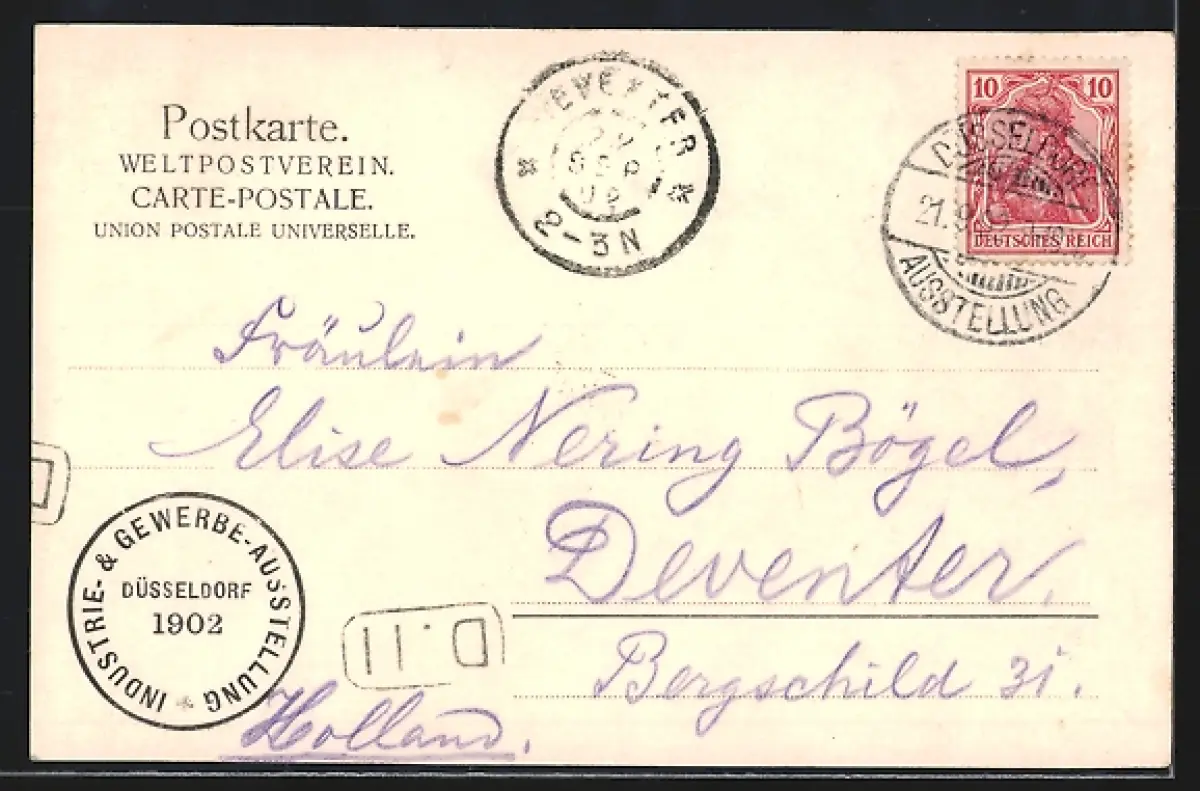 Postkarte.
WELTPOSTVEREIN.
CARTE-POSTALE.
UNION POSTALE UNIVERSELLE.
DEVENTER
SEP
2-3N
10 10
DEUTSCHES REICH
DÜSSELDORF
21.9.
AUSSTELLUNG
Fräulein
Elise Nering Bögel,
Deventer.
Bergschild 31.
Holland.
INDUSTRIE- & GEWERBE-AUSSTELLUNG
DÜSSELDORF
1902
D.II